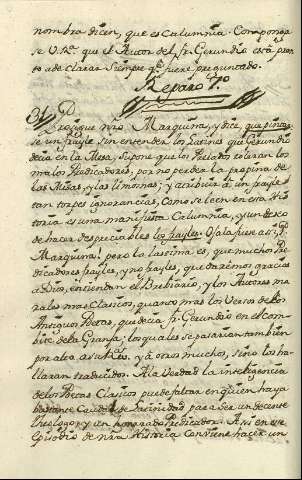 nombra dicen, que es calumnia. Componga
se V. Rma. que el Autor del Fr. Gerundio está pron
to a declarar siempre qe. fuere preguntado.
Reparo 7º
Prosigue nro. Marquina, y dice, que pintar
se un frayle sin entender los Latines que Gerundio
decia en la Mesa, supone que los Prelados toleran los
malos Predicadores, por no perder la propina de
las Misas, y las limosnas; y atribuir a un frayle
tan torpes ignorancias, como se leen en esta His
toria es una manifiesta Calumnia, y un deseo
de hacer despreciables los frayles. Ojala fuese asi, P.
Marquina, pero la lastima es, que muchos Pre
dicadores frayles, y no frayles, que daremos gracias
a Dios, entiendan el Breviario, y los Autores mo
rales mas Clasicos, quanto mas los Versos de los
Antiguos Poetas, que decia fr. Gerundio en el com
bite de la Granja; los quales se pasarian tambien
por alto a su
y a otros muchos, sino los ha
llaran traducidos. A la verdad la inteligencia
de los Poetas Clasicos puede faltar en quien haya
bastante Caudal de Latinidad para ser un decente
Theologo, y un honrado Predicador. Assi en este
Episodio de nra. Historia conviene hacer un